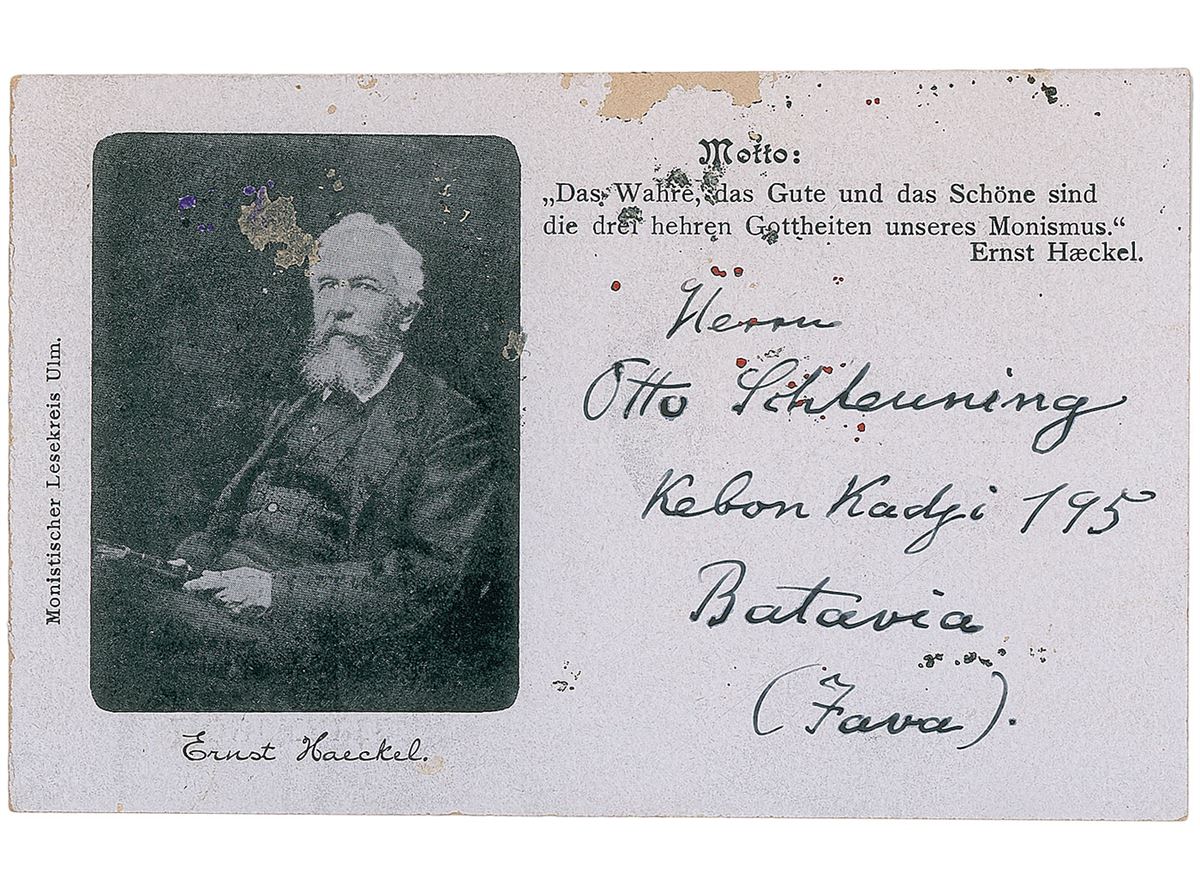 Monistischer Lesekreis Ulm.
Ernst Haeckel.
Motto:
„Das Wahre, das Gute und das Schöne sind
die drei hehren Gottheiten unseres Monismus.“
Ernst Hæckel.
Herrn
Otto Schleuning
Kebon Kadji 195
Batavia
(Java).